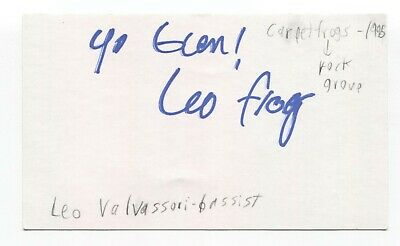 yo Glen!
Leo frog
Carpetfrogs - 1995
↓
rock
group
Leo Valvassori-bassist